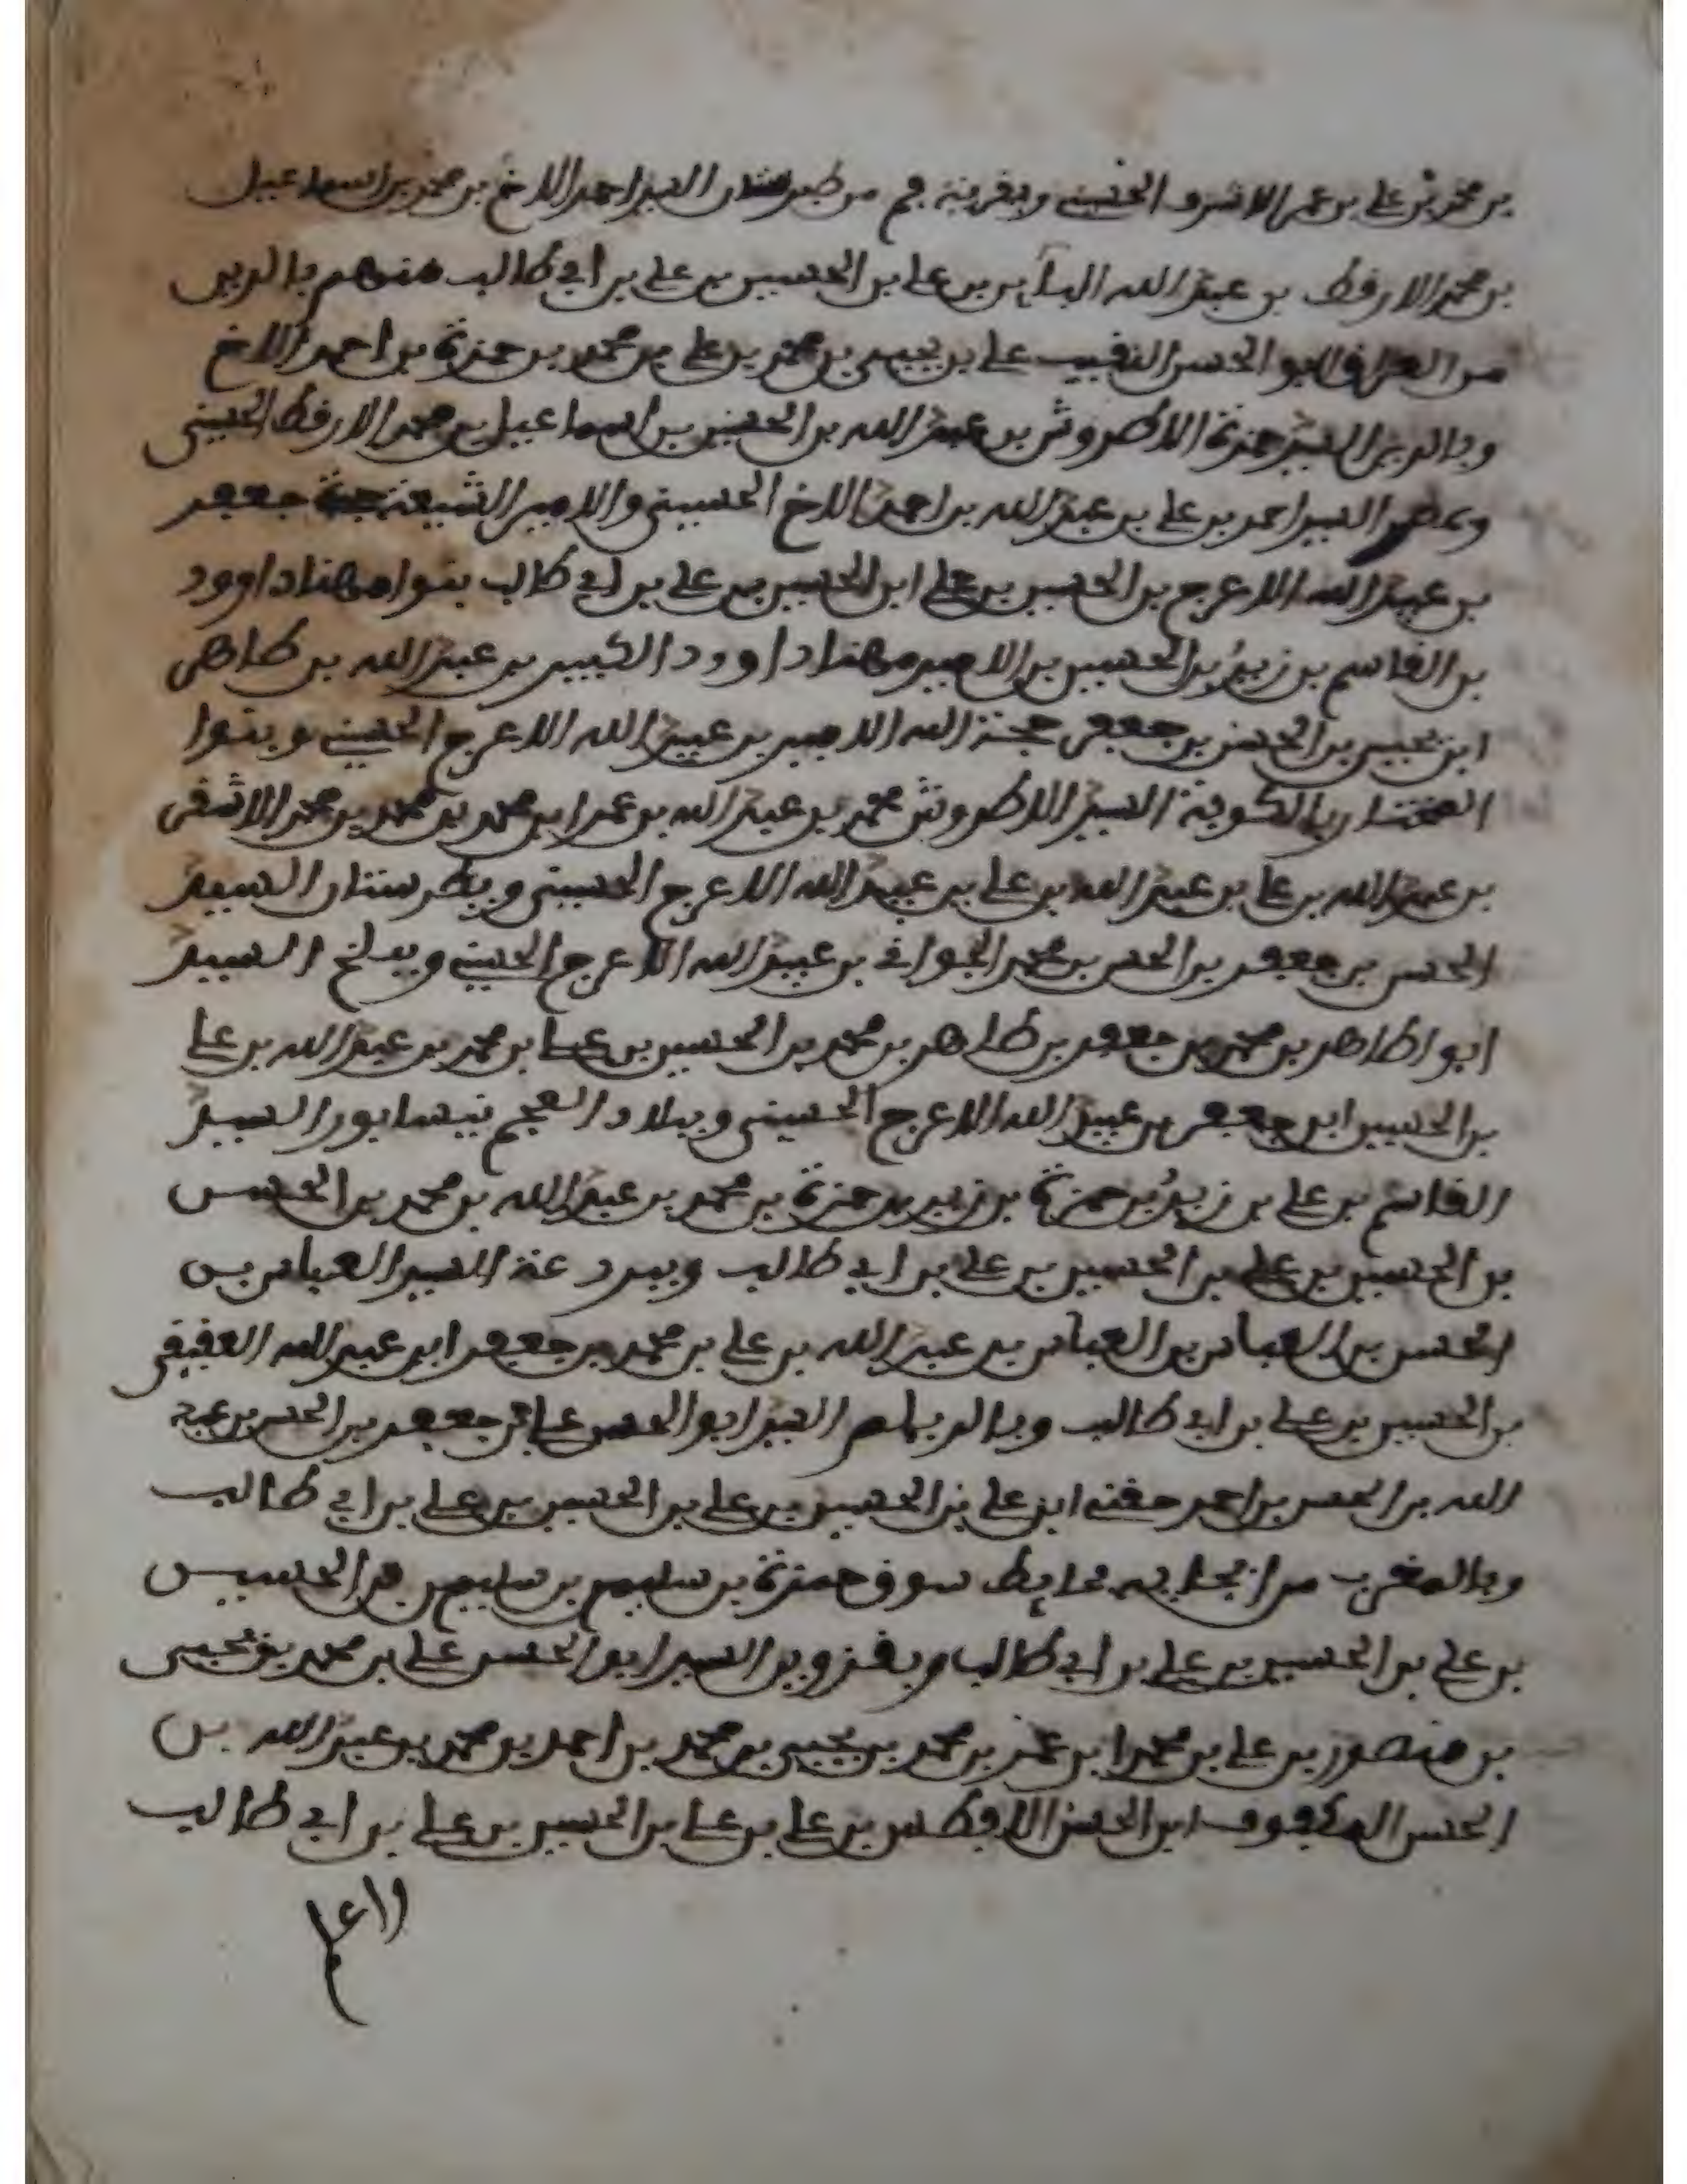 بن محمد بن علي بن عمر الاشرف الحسيني وبقرية قم من طبرستان السيد احمد الاخ بن محمد بن اسماعيل
بن محمد الارقط بن عبد الله الباهر بن علي بن الحسين بن علي بن ابي طالب منهم بالري
من العراق ابو الحسن النقيب علي بن يحيى بن محمد بن علي بن محمد بن حمزة بن احمد الاخ
وبالري السيد حمزة الاطروش بن عبد الله بن الحسين بن اسماعيل بن محمد الارقط الحسيني
وبمصر السيد احمد بن علي بن عبد الله بن احمد الاخ الحسيني والامير الشيعة جعفر
بن عبيد الله الاعرج بن الحسين بن علي ابن الحسين بن علي بن ابي طالب بنوا مهنا داوود
بن القاسم بن زيد بن الحسين بن الامير مهنا داوود الكبير بن عبد الله بن طاهر
ابن يحيى بن الحسن بن جعفر حجة الله الامير بن عبيد الله الاعرج الحسيني وبنوا
المختار بالكوفة السيد الاطروش محمد بن عبيد الله بن عمر ابن محمد بن محمد بن محمد الاشقر
بن عبيد الله بن علي بن عبيد الله بن علي بن عبيد الله الاعرج الحسيني وبطرستان السيد
الحسن بن جعفر بن الحسن بن محمد الجواني بن عبيد الله الاعرج الحسيني وببلخ السيد
ابو اطاهر بن محمد بن جعفر بن طاهر بن محمد بن الحسين بن علي بن محمد بن عبيد الله بن علي
بن الحسين ابن جعفر بن عبيد الله الاعرج الحسيني وببلاد العجم نيسابور السيد
القاسم بن علي بن زيد بن حمزة بن زيد بن حمزة بن محمد بن عبد الله بن محمد بن الحسن
بن الحسين بن علي بن الحسين بن علي بن ابي طالب وببردعة السيد العباس بن
الحسن بن العباس بن العباس بن عبد الله بن علي بن محمد بن جعفر ابن عبد الله العقيقي
بن الحسين بن علي بن ابي طالب وبالديلم السيد ابو الحسن علي بن جعفر بن الحسن بن عبد
الله بن الحسن بن احمد ابن علي بن الحسين بن علي بن الحسين بن علي بن ابي طالب
وبالمغرب من سوق حمزة بن سليم بن سليم بن الحسين
بن علي بن الحسين بن علي بن ابي طالب وبقزوين السيد ابو الحسن علي بن محمد بن يحيى
بن منصور بن علي بن محمد ابن عمر بن محمد بن يحيى بن محمد بن احمد بن محمد بن عبد الله بن
الحسن المكفوف ابن الحسن الافطس بن علي بن علي بن الحسين بن علي بن ابي طالب